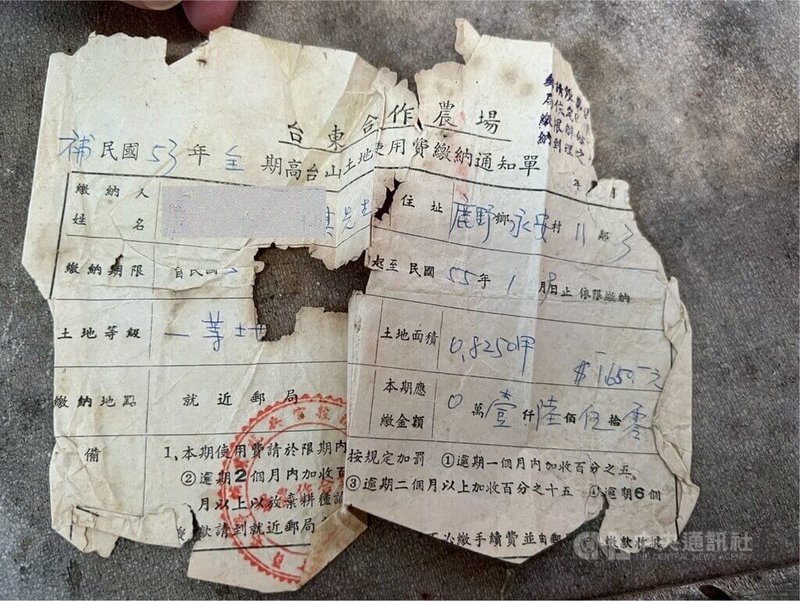 台東合作農場
補民國53年全期高台山土地使用費繳納通知單
年
繳納人
姓名
先生
住址
鹿野鄉永安村11鄰3
繳納期限
自民國
起至民國55年1月 日止依限繳納
土地等級
一等
土地面積
0.8250甲
$1650.-元
繳納地點
就近郵局
本期應
繳金額
0萬壹仟陸佰伍拾零
備
1、本期使用費請於限期內
按規定加罰 ①逾期一個月內加收百分之五
②逾期2個月內加收百
③逾期二個月以上加收百分之十五 ④逾期6個
月以上以放棄耕種
款請到就近郵局
必繳手續費並由郵
繳款收據
中央通訊社
CENTRAL NEWS AGENCY